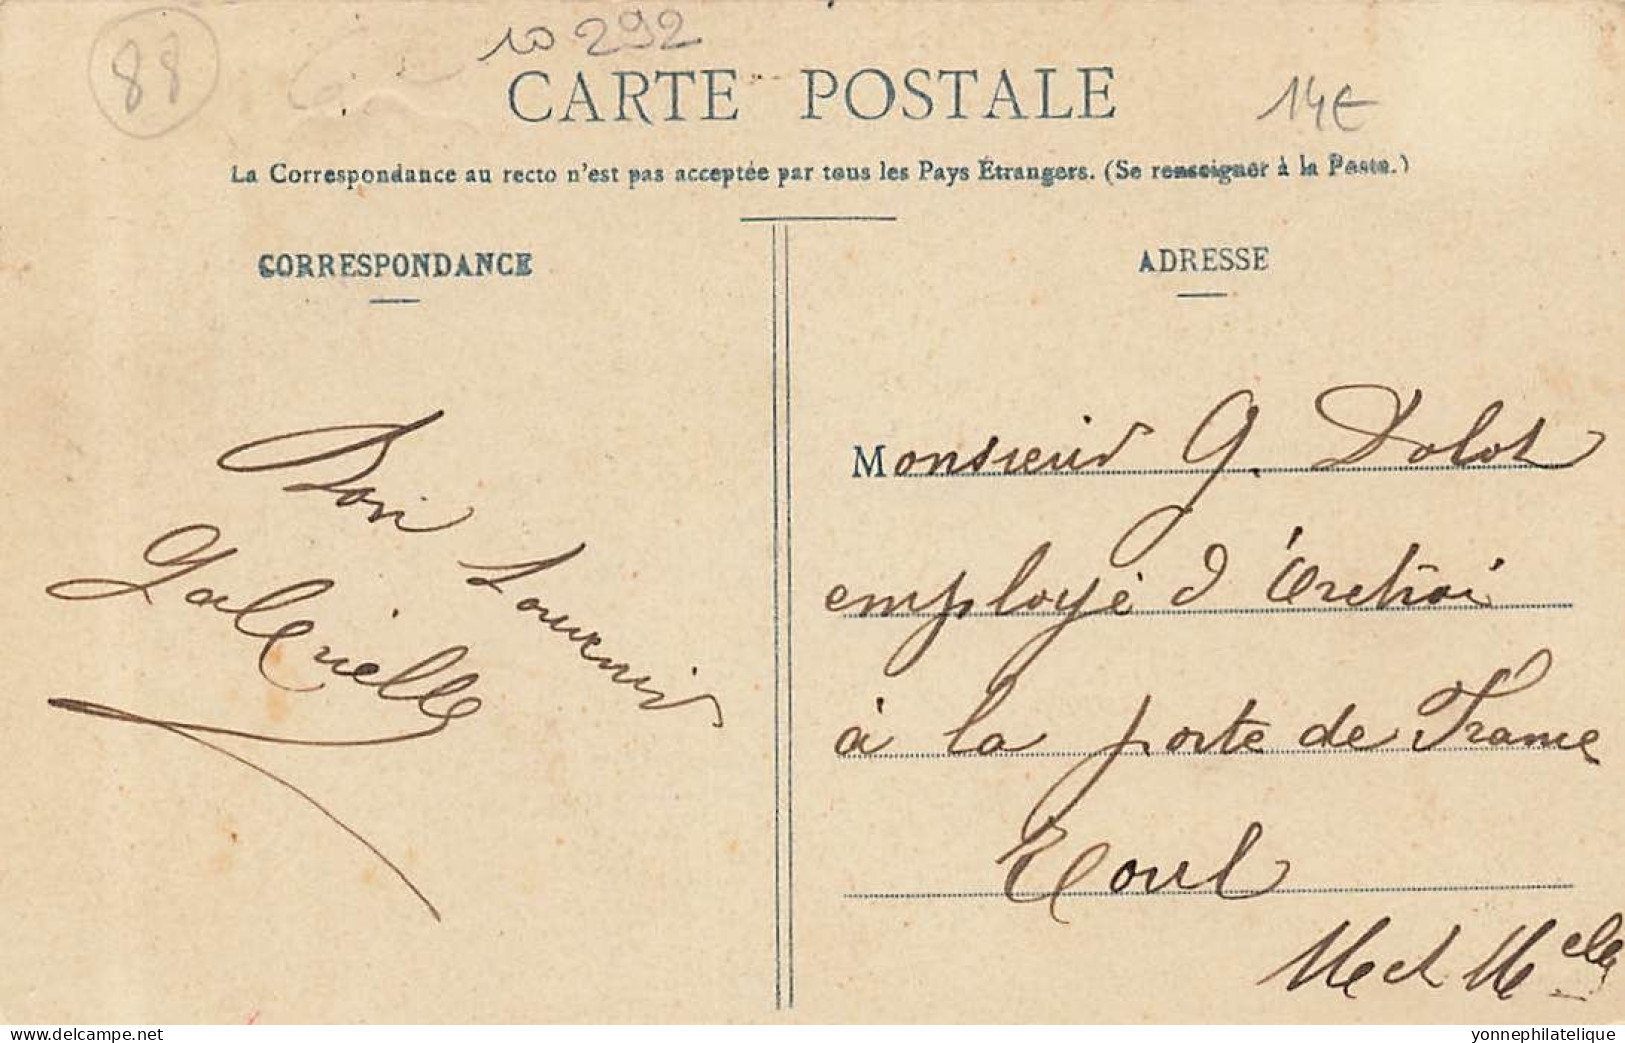 88
10 292
14€
CARTE POSTALE
La Correspondance au recto n'est pas acceptée par tous les Pays Étrangers. (Se renseigner à la Poste.)
CORRESPONDANCE
Bon Souvenir
Gabrielle
ADRESSE
Monsieur G. Dolot
employé d'Octroi
à la porte de France
Toul
Met Melle
www.delcampe.net
yonnephilatelique